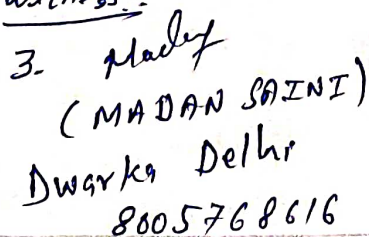 Witness:-
3. Madan
(MADAN SAINI)
Dwarka Delhi
8005768616